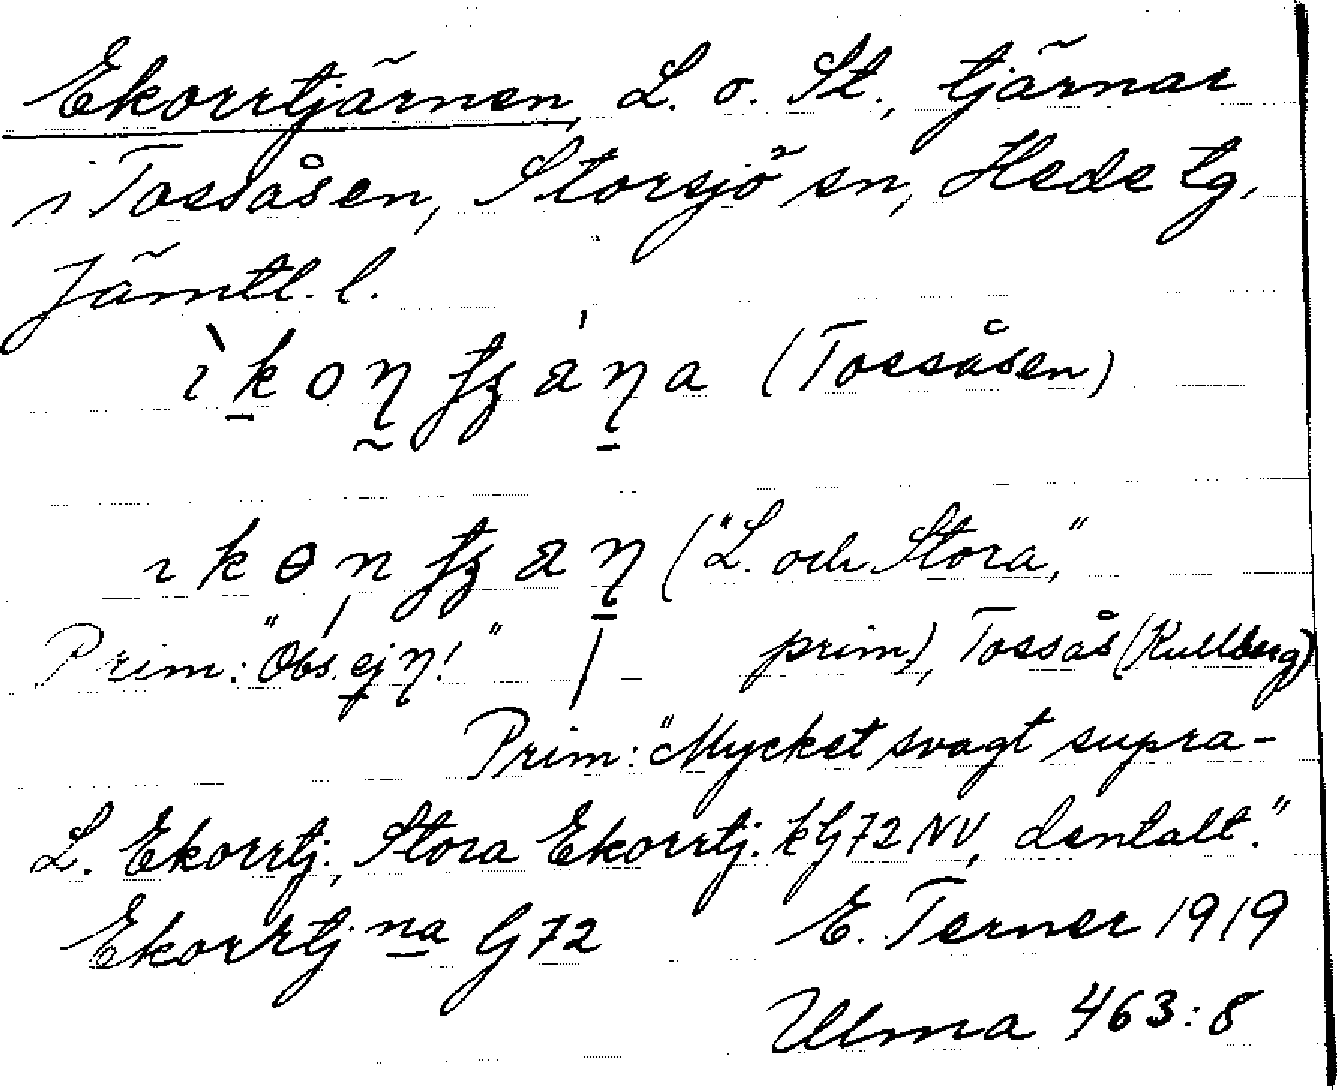 Ekorrtjärnen, L. o. St., tjärnar
i Tossåsen, Storsjö sn, Hede tg,
Jämtl. l.
(Tossåsen)
("L. och Stora",
Prim: "Obs. ej η!" prim), Tossås (Kullberg)
Prim: "Mycket svagt supra-
L. Ekorrtj., Stora Ekorrtj. kG72NV, dentalt."
Ekorrtj.na G72 E. Terner 1919
Ulma 463:8